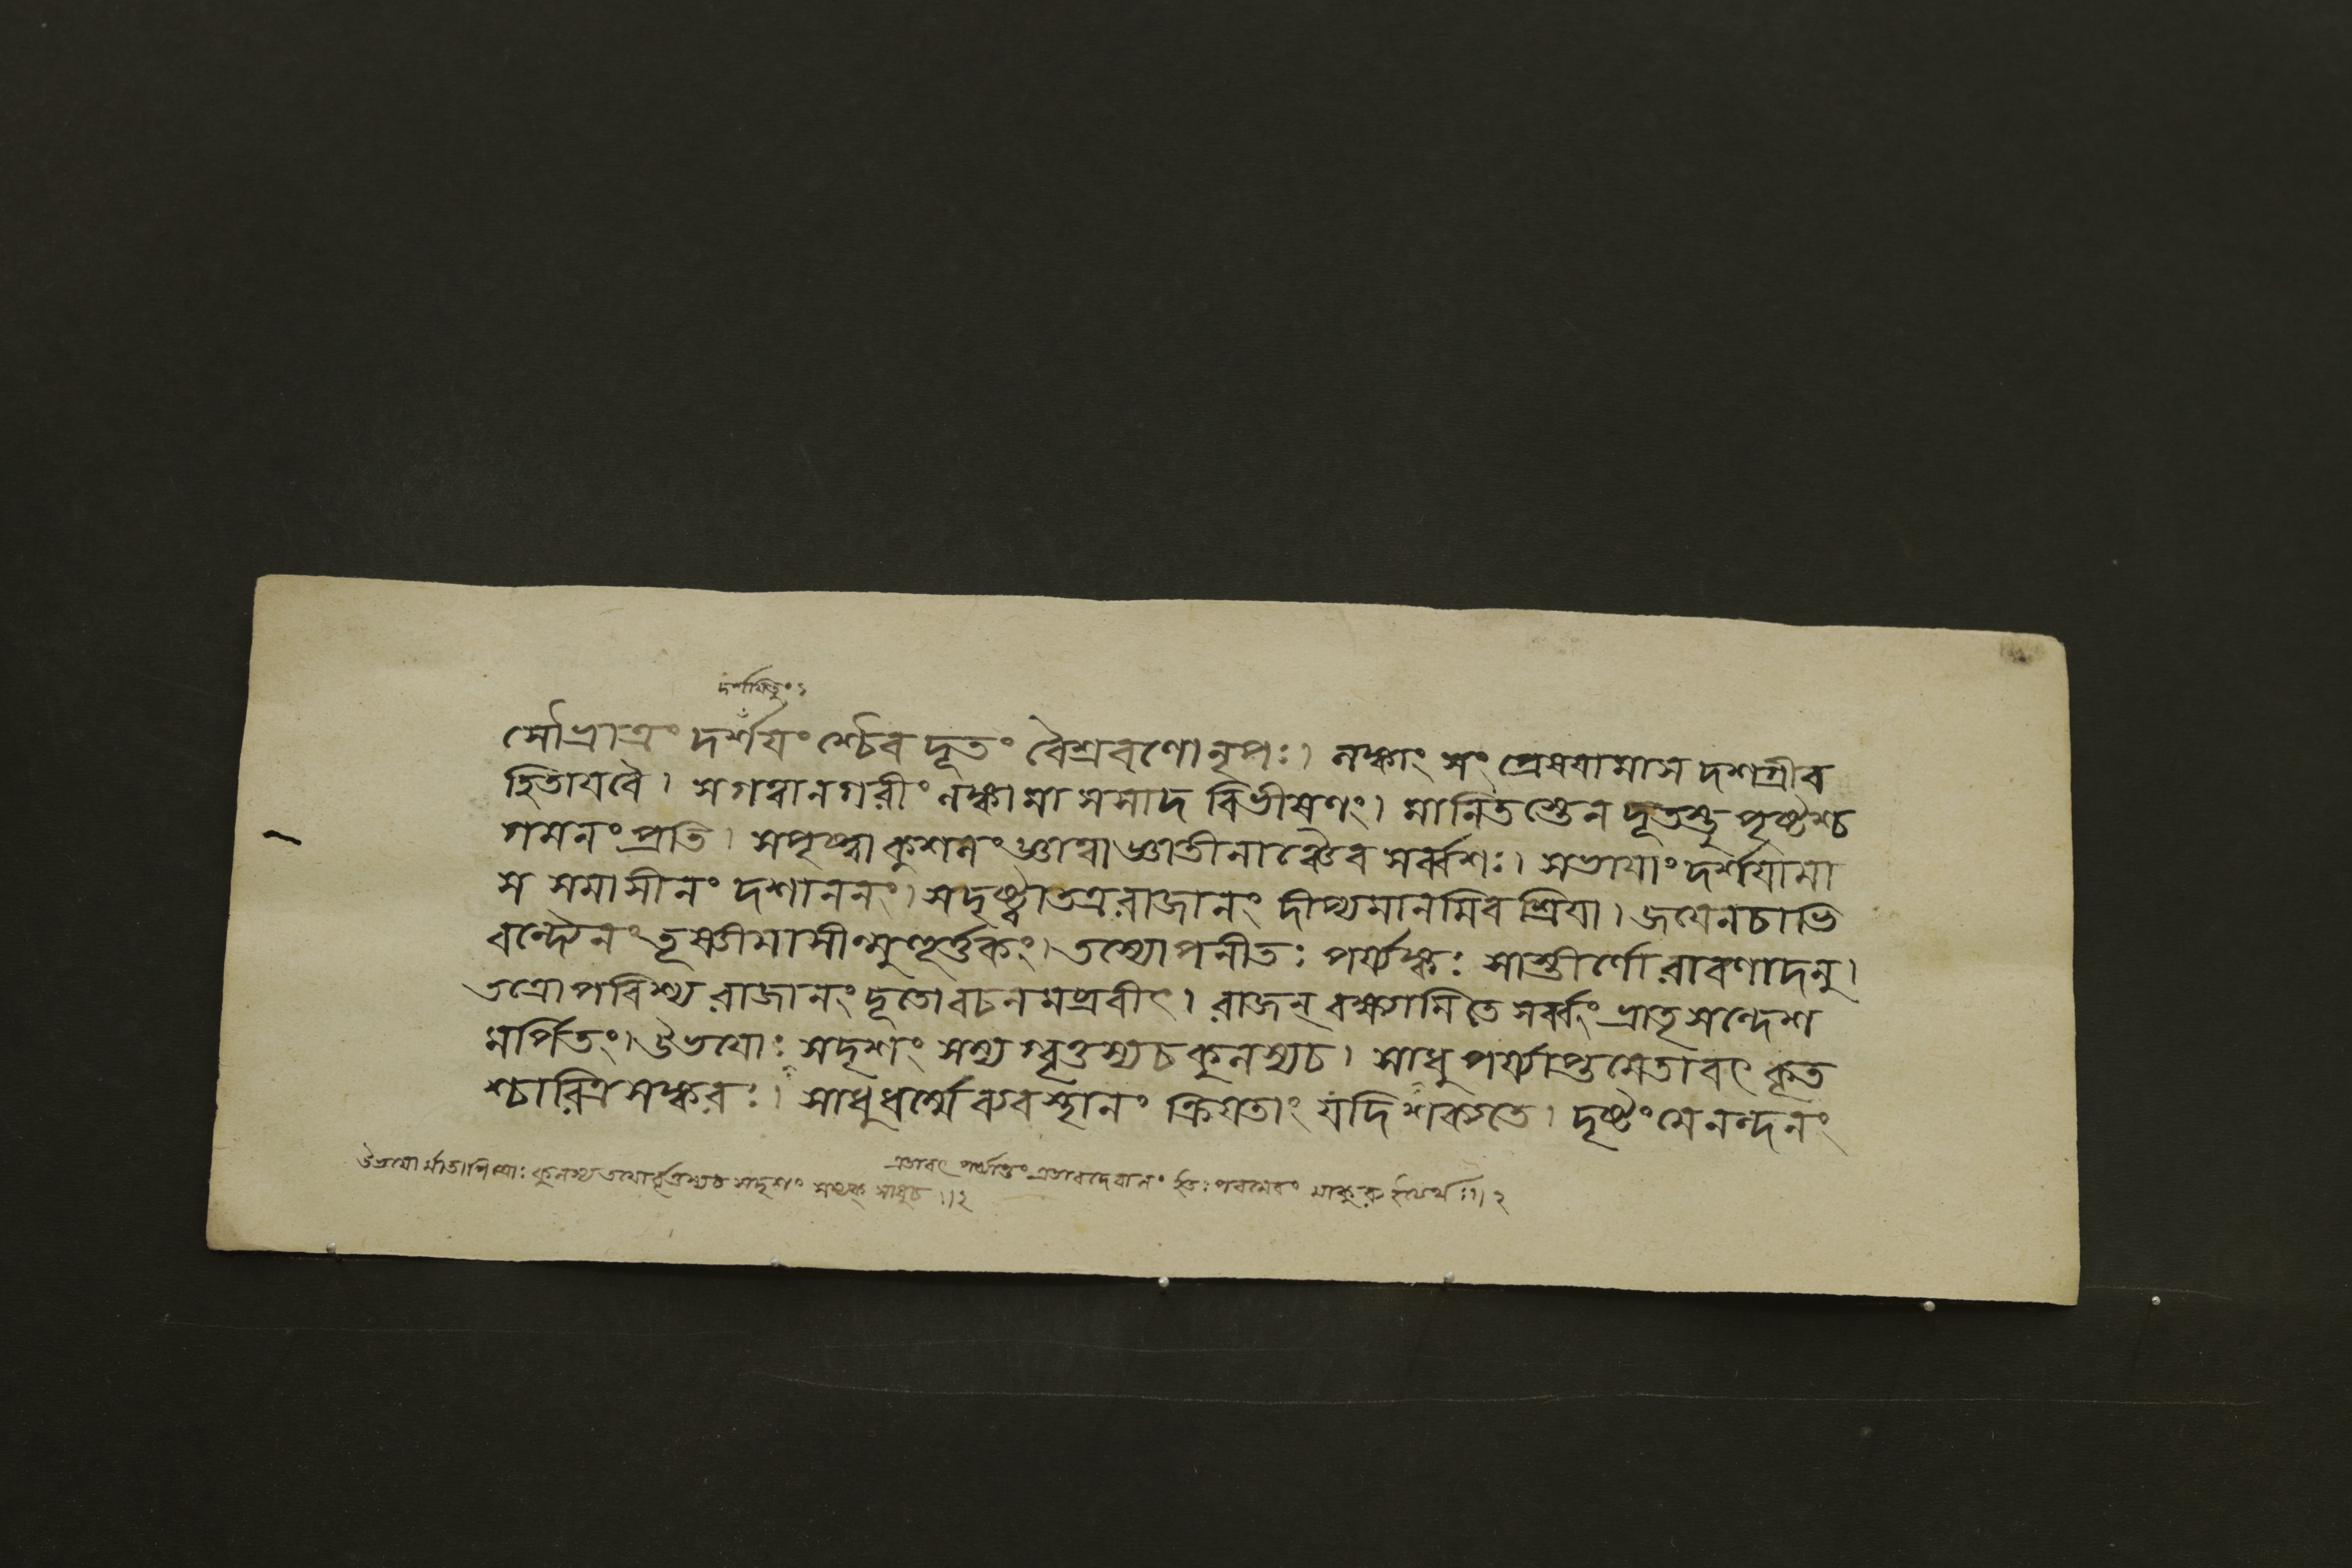 দর্শযিতুং ১
সৌভ্রাত্রং দর্শযংশ্চৈব দূতং বৈশ্রবণো নৃপঃ। লঙ্কাং সং প্রেষযামাস দশগ্রীব
হিতাযবৈ। সগত্বানগরীং লঙ্কামাসসাদ বিভীষণং। মানিতস্তেন দূতস্তু পৃষ্টশ্চ
গমনং প্রতি। সপৃষ্ট্বা কুশলং জ্ঞাত্বা জ্ঞাতীনাঞ্চৈব সর্ব্বশঃ। সভাযাং দর্শযামা
স সমাসীনং দশাননং। সদৃষ্ট্বাতত্ররাজানং দীপ্যমানমিব শ্রিযা। জযেনচাভি
বন্দ্যৈনং তূষ্ণীমাসীন্মুহূর্ত্তকং। তস্যোপনীতঃ পর্য্যঙ্কঃ সাস্তীর্ণো রাবণাদনু।
তত্রোপবিশ্য রাজানং দূতো বচনমব্রবীৎ। রাজন্ বক্ষ্যামি তে সর্ব্বং ভ্রাতৃ সন্দেশ
মর্পিতং। উভযোঃ সদৃশং সম্যগ্বৃত্তস্যচ কুলস্যচ। সাধু পর্য্যাপ্তমেতাবৎ কৃত
শ্চারিত্র সঙ্করঃ। সাধুধর্ম্মে ব্যবস্থানং ক্রিযতাং যদি শক্যতে। দৃষ্টং মে নন্দনং
এতাবৎ পর্য্যাপ্তং এতাবদেবালং পরমেবং মাকুরু
উভযো র্মাতাপিত্রোঃ কুলস্য তযোর্বৃত্তস্যচ সদৃশং সম্যক্ সাধুচ ।।২